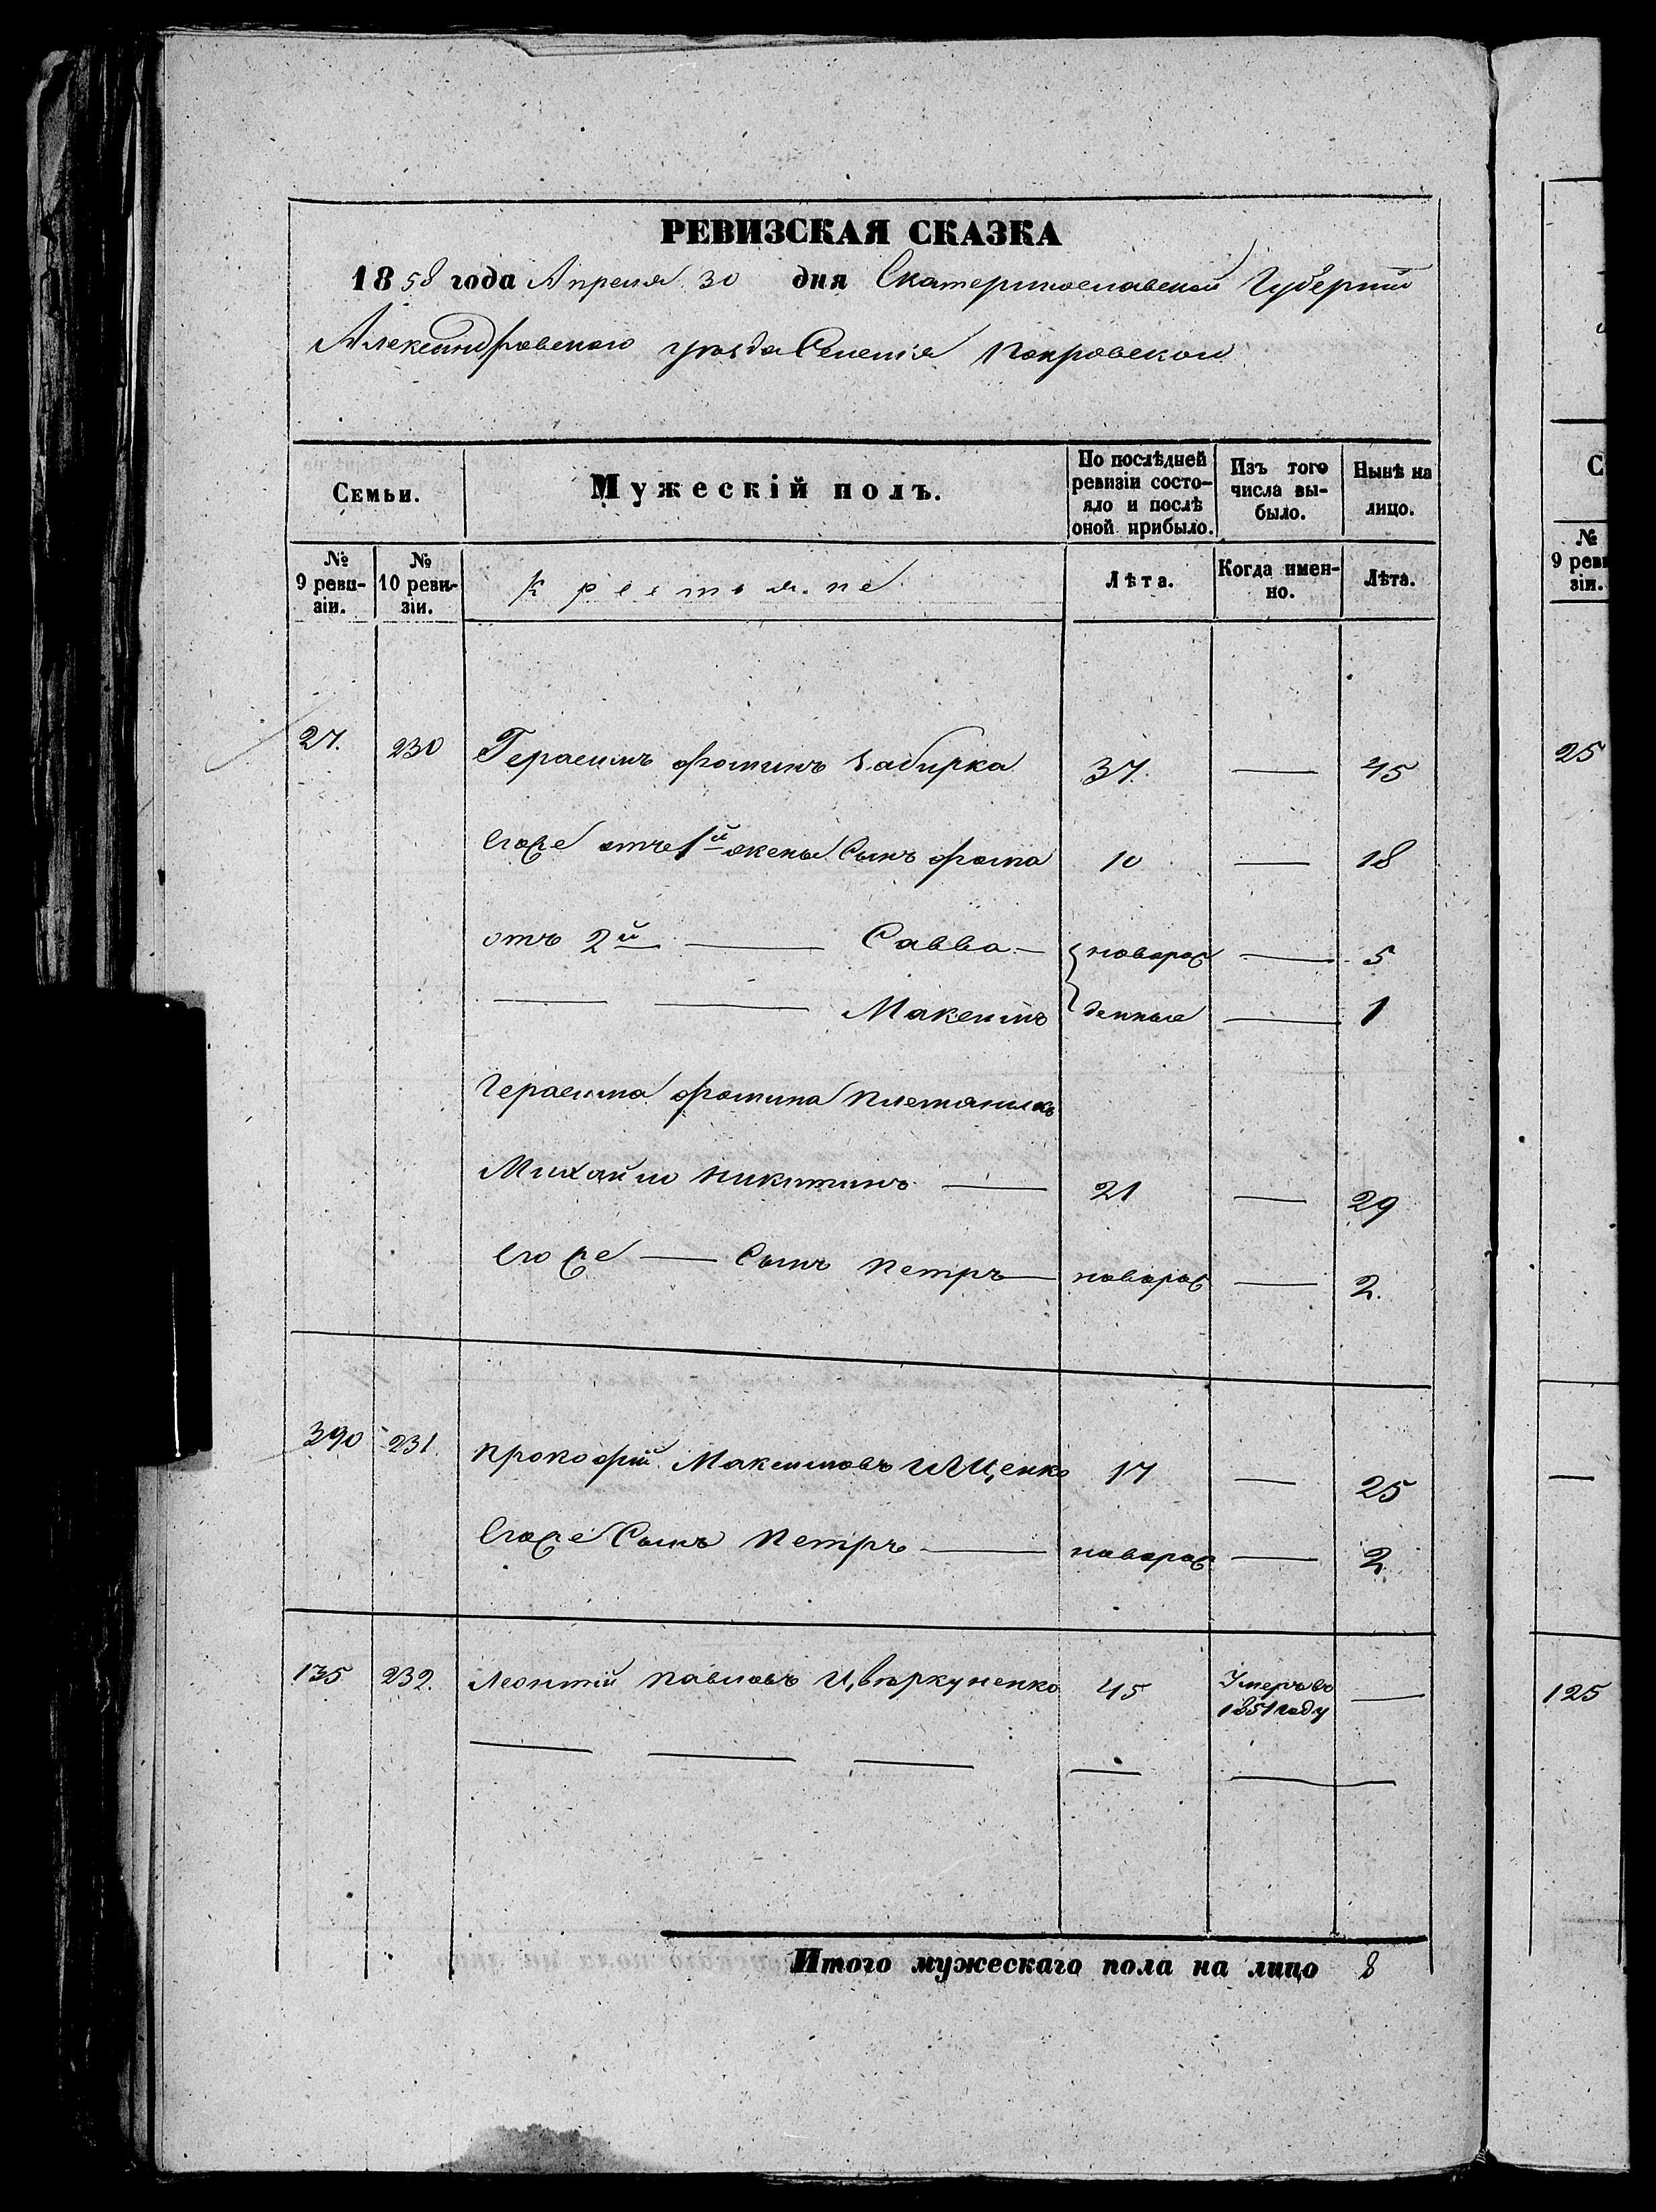 РЕВИЗСКАЯ СКАЗКА
1858 года Апреля 30 дня Екатеринославской Губернiи
Александровского уезда Селенiя Покровской
Семьи.
Мужескій полъ.
По послѣдней ревизіи состояло и послѣ оной прибыло.
Изъ того числа выбыло.
Нынѣ на лицо.
№ 9 ревизіи.
№ 10 ревизіи.
Крестьяне
Лѣта.
Когда именно.
Лѣта.
27. 230 Герасимъ Фоминъ 37. — 45
Егоже отъ 1й жены Сынъ Фома 10 — 18
отъ 2й — Савва — новорож — 5
— — Максимъ денные — 1
Герасима Фомина племянникъ
Михайло Никитинъ — 21 — 29
Егоже — Сынъ Петръ — новорож — 2.
390 231. Прокофій Максимовъ Ищенко 17 — 25
Егоже Сынъ Петръ — новорож — 2
135 232. Леонтій Павловъ Цвѣркуненко 45 Умеръ въ 1851 году —
Итого мужескаго пола на лицо 8
С
№
9 реви
зіи.
25
125